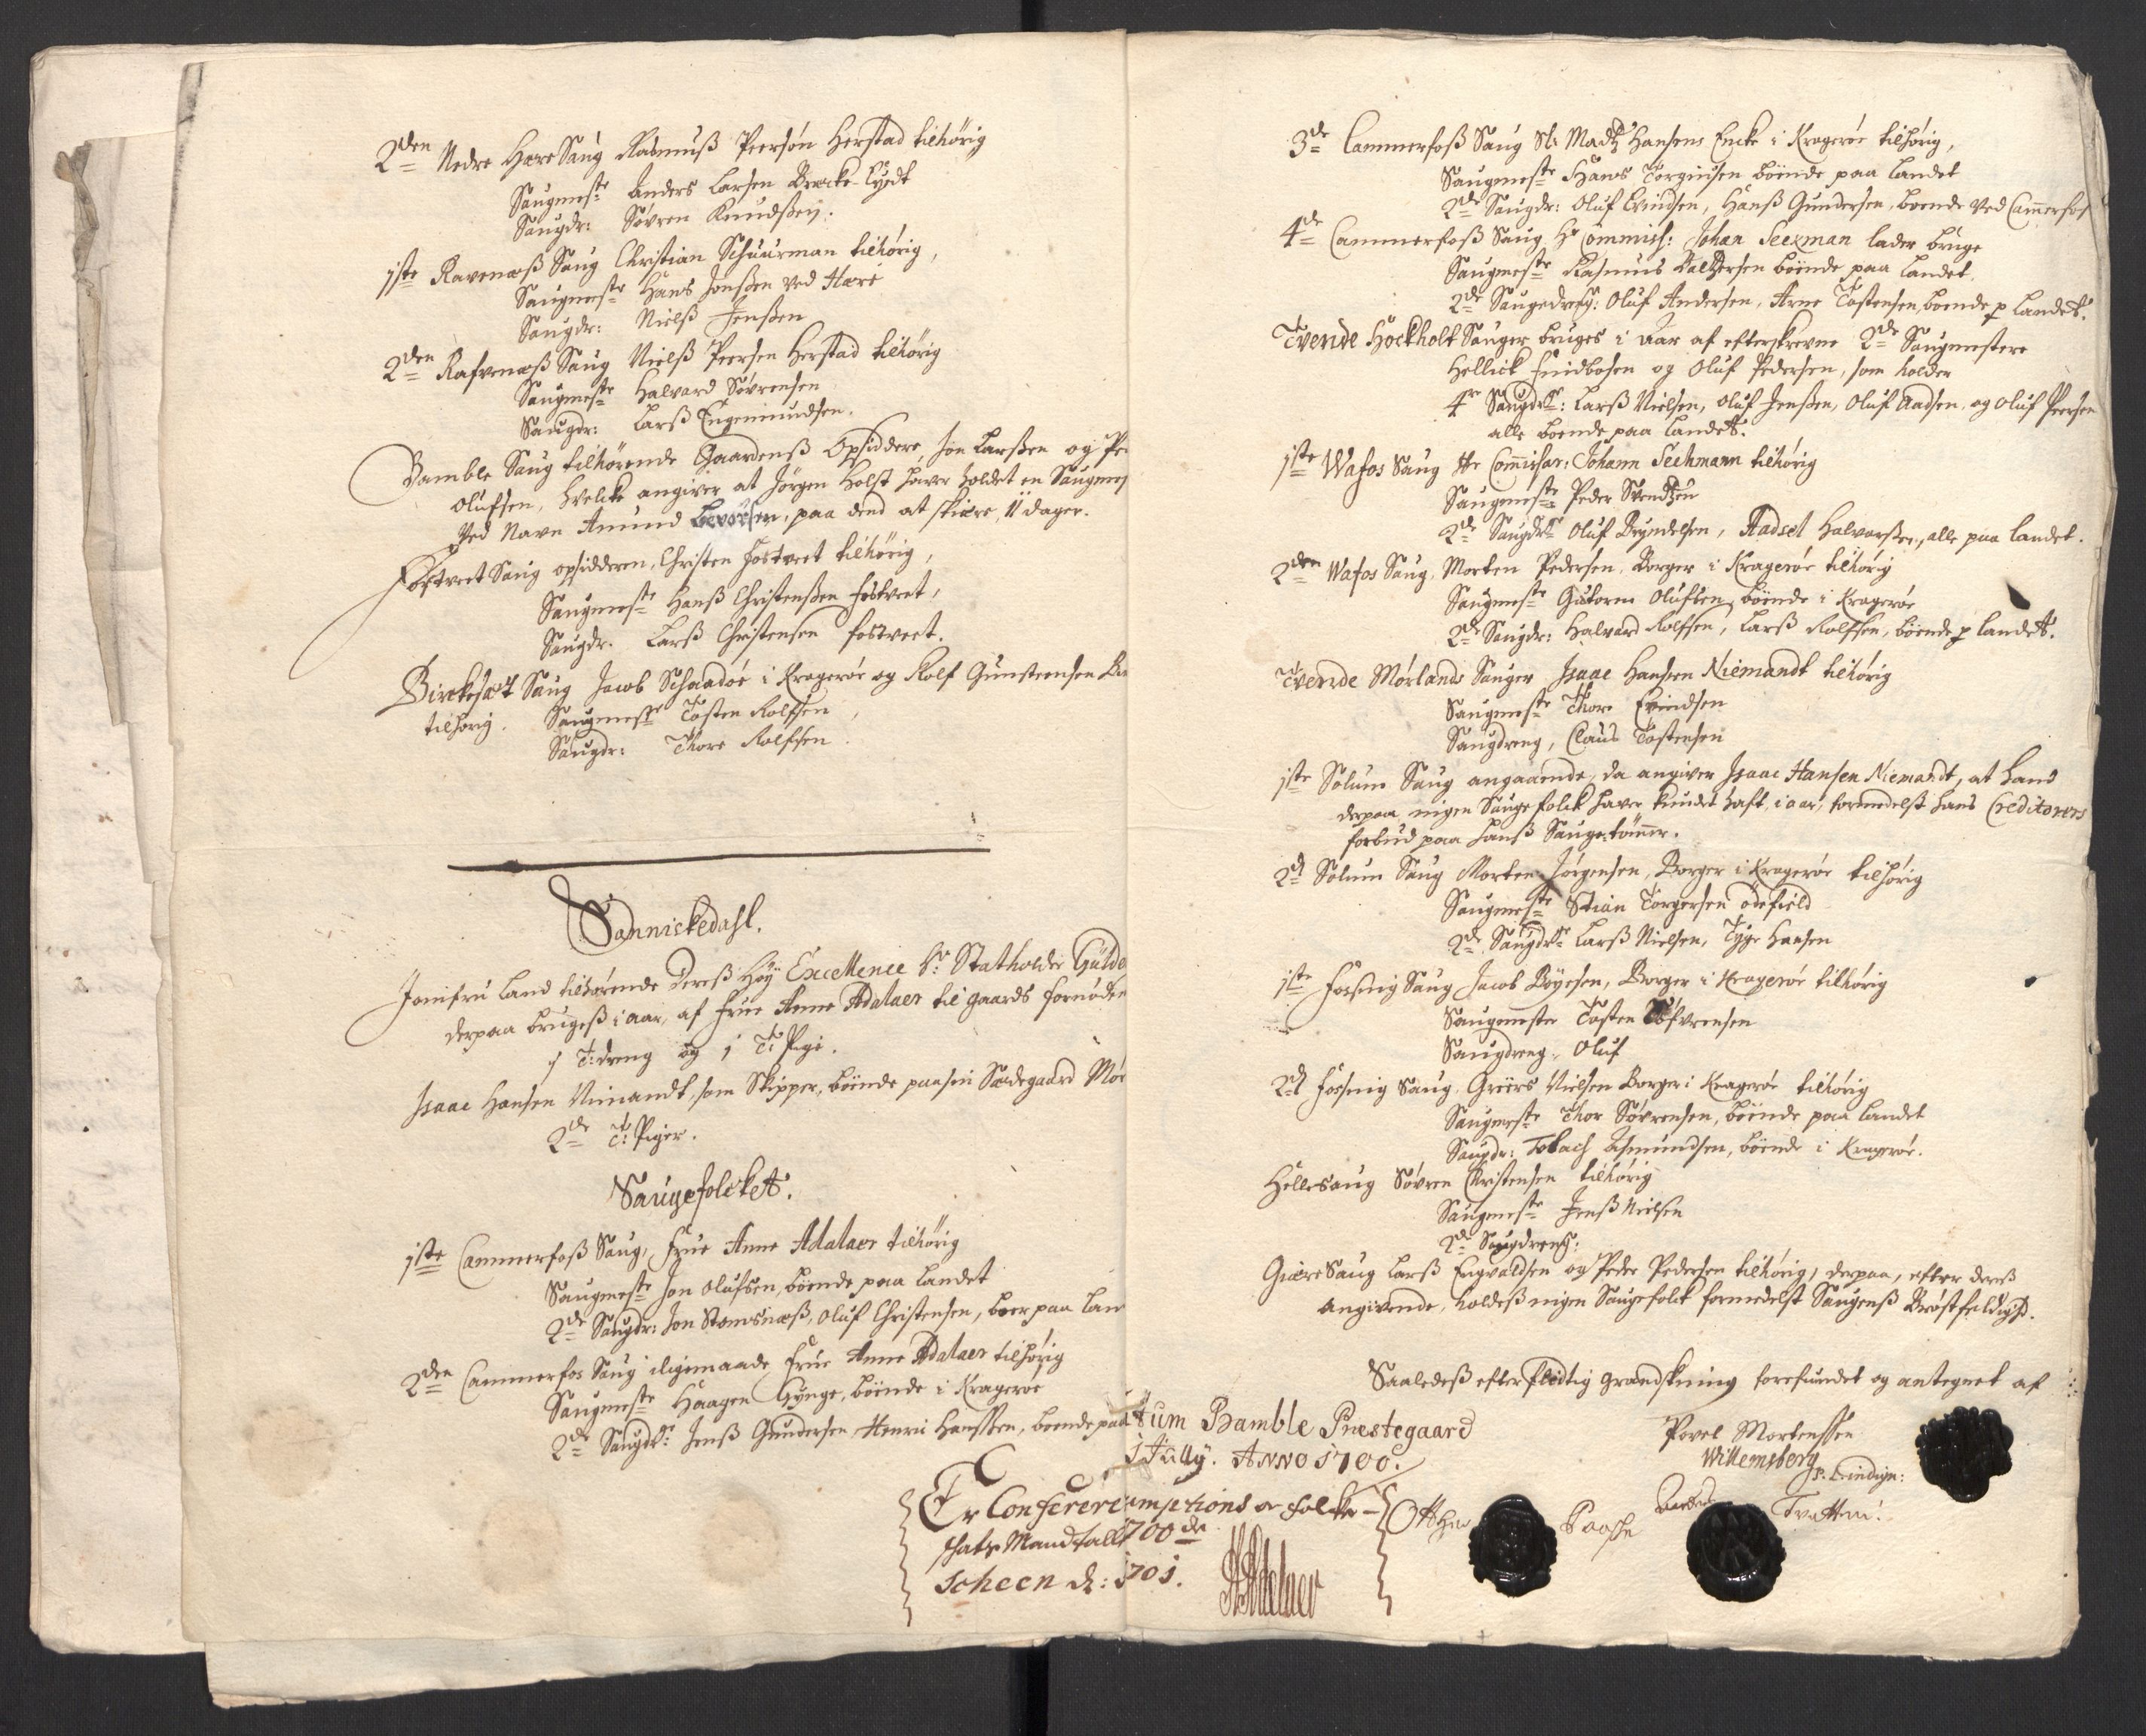 2den Nedre Hære Saug Rasmuß Peersøn Herstad tilhörig
Saugmeste Anders Larsen
Saugdr: Søvren Knudßen.
1ste Ravenæß Saug Christian Schuurman tilhörig,
Saugmeste Hans Jonßen ved Hære
Saugdr: Nielß Jenßen
2den Rafvenæß Saug Nielß Peersen Herstad tilhörig
Saugmeste Halvard Søvrensen
Saugdr: Larß Engemundsen.
Bamble Saug tilhörende Gaardenß Opsiddere, Jon Larßen og Pe
Olufsen, hvilcke angiver at Jörgen Holst haver holdet en Saugmes
Ved Navn Amund, paa dend at skiære, 11 dager.
Fostvet Saug opsidderen, Christen Fostvet tilhörig,
Saugmeste Hanß Christenßen Fostvet,
Saugdr. Larß Christensen Fostvet.
Birckesæt Saug Jacob Schaadöe i Kragerøe og Rolf Gunstensen
tilhörig. Saugmeste Tosten Rolfsen,
Saugdr: Thore Rolfsen.
Sannickedahl.
Jomfru Land tilhörende Dereß Höÿ Excellence Hr Statholder Gülde
derpaa brugeß i aar, af Frue Anne Adelaer til gaards fornöden
1 T:dreng og 1 T: Pige.
Isaac Hansen Nimandt, som Skipper, böende paa sin Sædegaard Mör
2de T: Piger.
Saugefolcket.
1ste Cammerfoß Saug, Frue Anne Adalaer tilhörig
Saugmeste Jon Olufsen, böende paa Landet
2de Saugdr: Jon Stomsnæß, Oluf Christensen, boer paa Lan
2den Cammerfos Saug iligemaade Frue Anne Adalaer tilhörig
Saugmeste Haagen Gynge, böende i Kragerøe
2de Saugdr: Jenß Gundersen Henric Hanßen, boende paa
3de Cammerfoß Saug Sl: Madtz Hansens Encke i Kragerøe tilhörig,
Saugmeste Hans Törgiusen böende paa Landet
2de Saugdr: Oluf Evindsen, Hanß Gundersen, boende ved Camerfos
4de Cammerfoß Saug Hr Commiss: Johan Seekman lader bruge
Saugmeste Rasmus Baltzersen böende paa Landet
2de Saugedreng: Oluf Andersen, Arne Tostensen, boende p Landet.
Tvende Hockholt Sauger bruges i Aar af efterskrevne 2de Saugmestere
Hellick Findbosen og Oluf Pedersen, som holder
4re Saugdr: Larß Nielsen, Oluf Jenßen, Oluf Aadsen, og Oluf Peersen
alle boende paa Landet.
1ste Wafos Saug Hr Commissar: Johann Seehmann tilhörig
Saugmeste Peder Svendtzen
2de Saugdr Oluf Bryndelsen, Aadsel Halvorßen, alle paa Landet.
2den Wafos Saug, Morten Pedersen, Borger i Kragerøe tilhörig
Saugmeste Gutorm Olufsen, böende i Kragerøe
2de Saugdr: Halvard Rolfsen, Larß Rolfsen, böende p Landet.
Tvende Mörlands Sauger Isaac Hansen Niemandt tilhörig
Saugmeste Thore Evindsen
Saugdreng, Claus Tostensen
1ste Solum Saug angaaende, da angiver Isaac Hansen Niemandt, at hand
derpaa ingen Saugefolck haver kundet haft, i aar, formedelst hans Creditorers
forbud paa hanß Sauge-tömmer.
2de Solum Saug Morten Jörgensen, Borger i Kragerøe tilhörig
Saugmeste Stian Torgersen ödefield
2de Saugdr Larß Nielsen, Tyge Hansen
1ste Fossing Saug Jacob Böyesen, Borger i Kragerøe tilhörig
Saugmester Tosten Töfvrensen
Saugdreng, Oluf
2de Fossing Saug, Greers Nielsen Borger i Kragerøe tilhörig
Saugmeste Thor Sövrensen, böende paa Landet
Saugdr: Tobach Asmundsen, böende i Kragerøe.
Hellesaug Sövren Christensen tilhörig
Saugmeste Jenß Nielsen
2de Saugdreng:
Giære Saug Larß Engvaldsen og Peder Pedersen tilhörig, derpaa, efter dereß
angivende, holdeß ingen Saugefolck formedelst Saugenß Bröstfeldighed.
Saaledeß efter flidtig grandskning forefundet og antegnet af
tum Bamble Prestegaard
1 Jully. Anno 1700.
Povel Mortenssen
Willemsberg
Er Confereret umptions or folke-
skatz Mandtall 1700 de
Scheen d: 1701.
HAdelaer
Otthe Paasche
Tvetten: